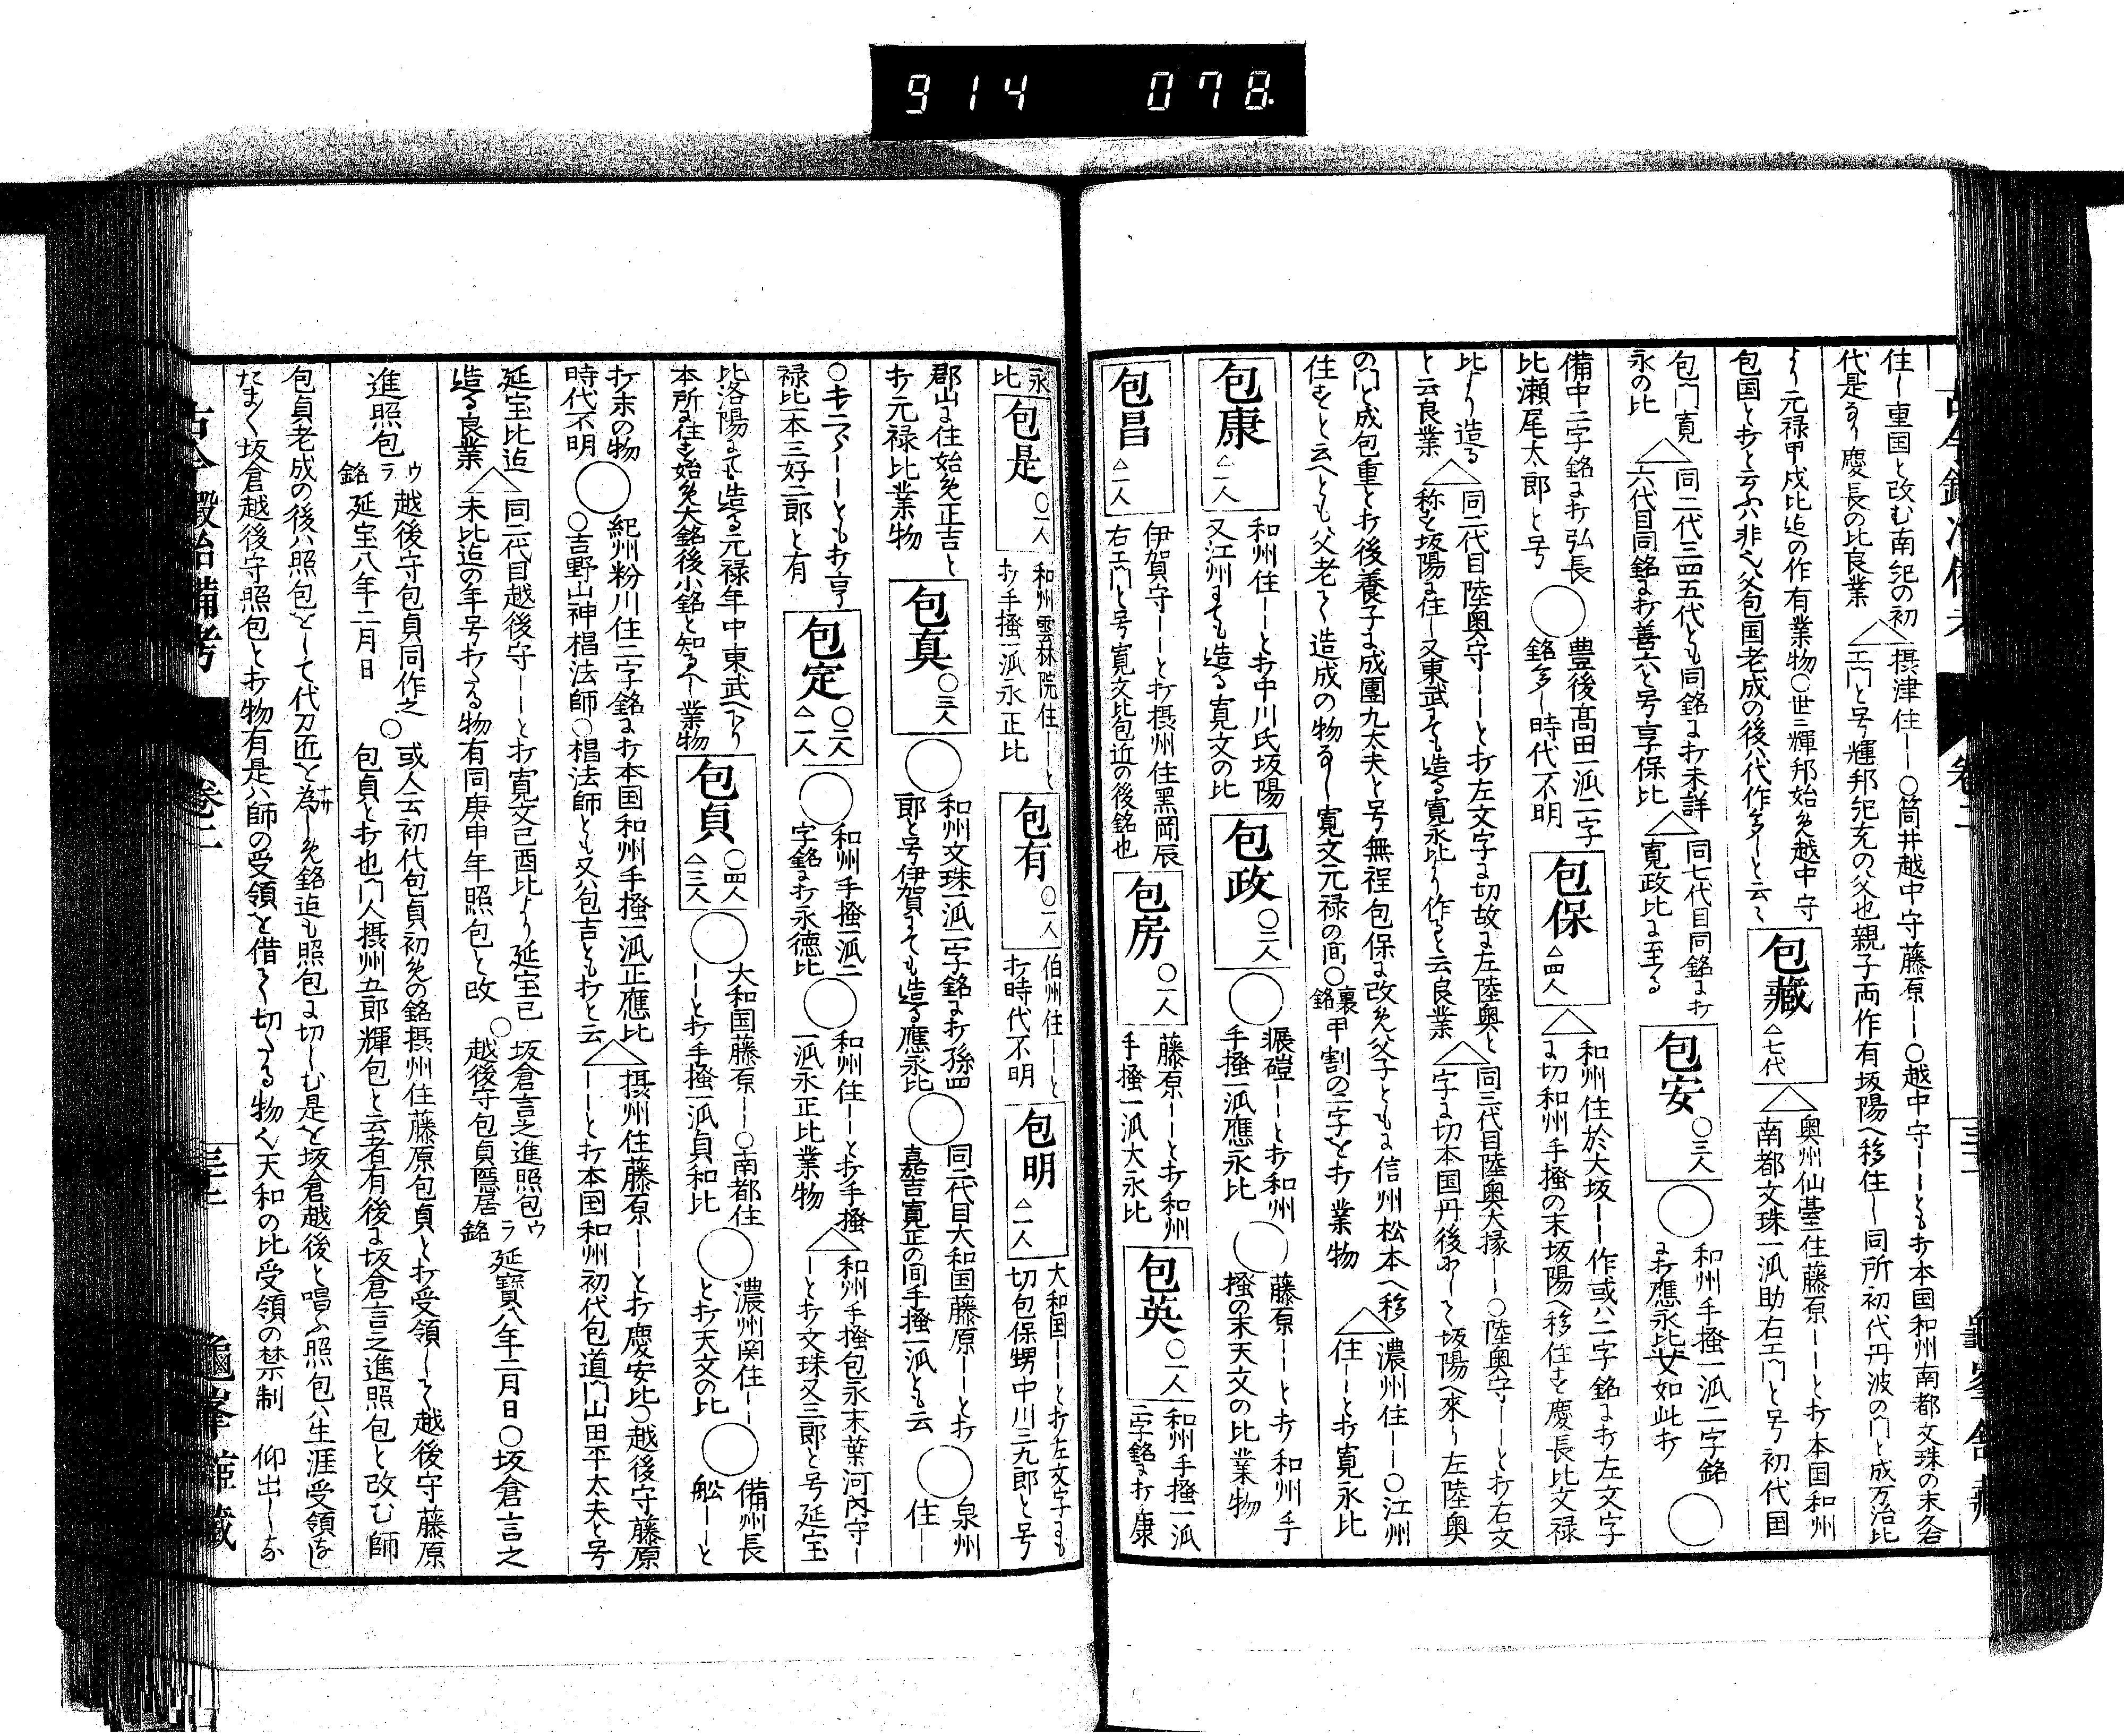 914 078
住ー重国と改む南紀の初
代是なり慶長の比良業
△摂津住ーー○筒井越中守藤原ーー○越中守ーーとも打本国和州南都文珠の末久右
エ門と号輝邦包充の父也親子両作有坂陽へ移住ー同所初代丹波の門と成万治比
より元禄甲戌比迄の作有業物○世ニ輝邦始め越中守
包国と打と云ふハ非也父包国老成の後ハ代作多ーと云々
包藏 △七代
△奥州仙臺住藤原ーーと打本国和州
南都文珠一派助右エ門と号初代国
包門寛
永の比
△同二代三四五代とも同銘に打未詳
六代目同銘に打善六と号享保比
△同七代目同銘に打
寛政比に至る
包安 ○三人
○和州手掻一派二字銘
に打應永比
如此打
○
備中二字銘に打弘長
比瀬尾太郎と号
○豊後高田一派二字
銘多ー時代不明
包保 △四人
△和州住於大坂ーー作或ハ二字銘に打左文字
に切和州手掻の末坂陽へ移住す慶長比文禄
比より造る
と云良業
△同二代目陸奥守ーーと打左文字に切故に左陸奥と
称す坂陽に住ー又東武にても造る寛永比より作ると云良業
△同三代目陸奥大掾ーー○陸奥守ーーと打右文
字に切本国丹後にーて坂陽へ来り左陸奥
の門と成包重と打後養子に成團九太夫と号無程包保に改め父子ともに信州松本へ移
住すと云へとも父老て造成の物なー寛文元禄の間○裏銘甲割の二字を打業物
△濃州住ーー○江州
住ーーと打寛永比
包康 △一人
和州住ーーと打中川氏坂陽
又江州にても造る寛文の比
包政 ○二人
○碾磑ーーと打和州
手掻一派應永比
○藤原ーーと打和州手
掻の末天文の比業物
包昌 △一人
伊賀守ーーと打摂州住黒岡辰
右エ門と号寛文比包近の後銘也
包房 ○一人
藤原ーーと打和州
手掻一派大永比
包英 ○一人
和州手掻一派
二字銘に打康
永
比
包是 ○一人
和州雲林院住ーーと
打手掻一派永正比
包有 ○一人
伯州住ーーと
打時代不明
包明 △一人
大和国ーーと打左文字にも
切包保甥中川三九郎と号
郡山に住始め正吉と
打元禄比業物
包真 ○三人
○和州文珠一派二字銘に打孫四
郎と号伊賀にても造る應永比
○同二代目大和国藤原ーーと打
嘉吉寛正の間手掻一派とも云
○泉州
住ー
禄比一本三好二郎と有
包定 ○三人 △一人
○和州手掻一派二
字銘に打永徳比
○和州住ーーと打手掻
一派永正比業物
△和州手掻包永末葉河内守ー
ーと打文珠又三郎と号延宝
比洛陽にても造る元禄年中東武へ下り
本所に住す始め大銘後小銘と知るへー業物
包貞 ○四人 △三人
○大和国藤原ーー○南都住
ーーと打手掻一派貞和比
○濃州関住ーー
と打天文の比
○備州長
舩ーーと
打末の物
時代不明
○紀州粉川住二字銘に打本国和州手掻一派正應比
○吉野山神椙法師○椙法師とも又ハ包吉とも打と云
△摂州住藤原ーーと打慶安比○越後守藤原
ーーと打本国和州初代包道門山田平太夫と号
延宝比迄
造る良業
△同二代目越後守ーーと打寛文己酉比より延宝己
未比迄の年号打たる物有同庚申年照包と改
○坂倉言之進照包
越後守包貞隠居
ウラ銘
延寶八年二月日○坂倉言之
進照包
ウラ銘
越後守包貞同作之
延宝八年二月日
○或人云初代包貞初めの銘摂州住藤原包貞と打受領ーて越後守藤原
包貞と打也門人摂州五郎輝包と云者有後に坂倉言之進照包と改む師
包貞老成の後ハ照包をーて代刀匠と為ーめ銘迄も照包に切ーむ是を坂倉越後と唱ふ照包ハ生涯受領なし
たま〱坂倉越後守照包と打物有是ハ師の受領を借て切たる物也天和の比受領の禁制 仰出ーな
古今鍛冶備考 巻二 龜峯舘藏